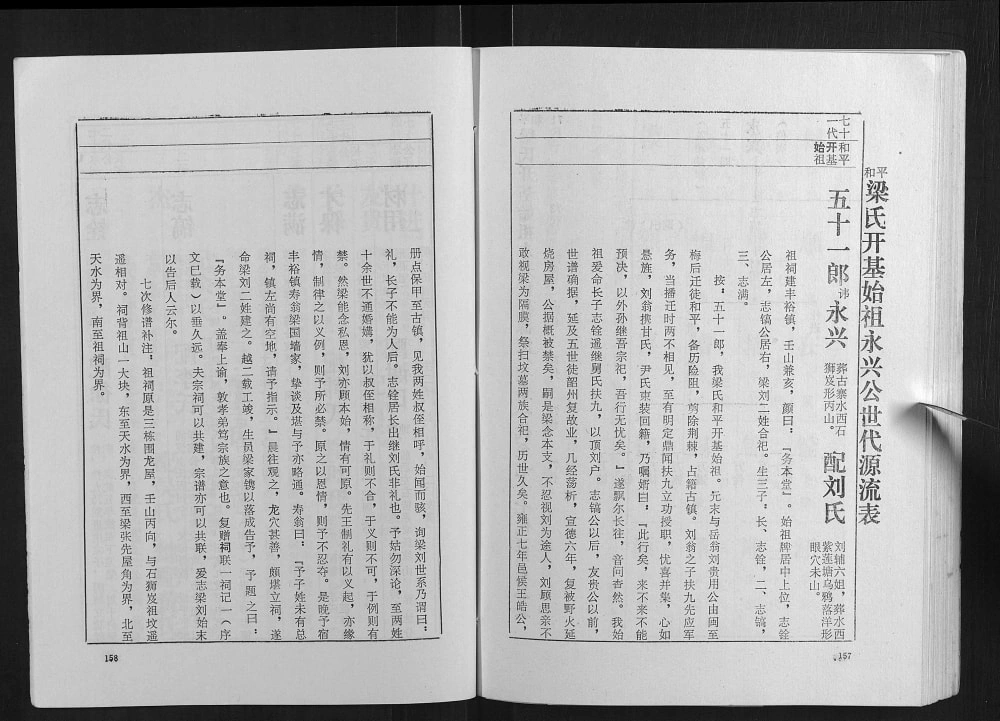 和平
梁氏开基始祖永兴公世代源流表
七十一代
和平开基始祖
五十一郎
讳
永兴
葬古寨水西石
狮岌形丙山。
配刘氏
刘辅六姐，葬水西
紫莲塘乌鸦落洋形
眼穴未山。
祖祠建丰裕镇，壬山兼亥，颜曰：『务本堂』。始祖牌居中上位，志铨
公居左，志镐公居右，梁刘二姓合祀。生三子：长、志铨，二、志镐，
三、志满。
按，五十一郎，我梁氏和平开基始祖。元末与岳翁刘贵用公由闽至
梅后迁徒和平，备历险阻，剪除荆棘，占籍古镇。刘翁之子扶九先应军
务，当播迁时两不相见，至有明定鼎闻扶九立功授职，优喜并集，心如
悬旌，刘翁携甘氏，尹氏束装回籍，乃嘱婿曰：『此行矣，来不来不能
预决，以外孙继吾宗祀，吾行无忧矣。』遂飘尔长往，音问杳然。我始
祖爱命长子志铨遥继舅氏扶九，以顶刘户。志镐公以后，友贵公以前，
世谱确据，延及五世徒韶州复故业，几经荡析，宣德六年，复被野火延
烧房屋，公据概被禁矣，嗣是梁念本支，不忍视刘为途人，刘顾思亲不
敢视梁为隔膜，祭扫坟墓两族合祀，历世久矣。雍正七年邑侯王皓公，
157
册点保甲至古镇，见我两姓叔侄相呼，始闻而骇，询梁刘世系乃谓曰：
礼，长子不能为人后。志铨居长出继刘氏非礼也。予姑勿深论，至两姓
十余世不通婚媾，犹以叔侄相称，于礼则不合，于义则不可，于例则有
禁。然梁能念私恩，刘亦顾本始，情有可原。先王制礼有以义起，亦缘
情，制律之以义例，则予所必禁。原之以恩情，则予不忍夺。是晚予宿
丰裕镇寿翁梁国墙家，挚谈及堪与予亦略通。寿翁曰：『予子姓未有总
祠，镇左尚有空地，请予指示。』晨往观之，龙穴甚善，颇堪立祠，遂
命梁刘二姓建之。越二载工竣，生员梁家镌以落成告予，予题之曰：
『务本堂』。盖奉上谕，敦孝弟笃宗族之意也。复赠祠联一祠记一（序
文巳载）以垂久远。夫宗祠可以共建，宗谱亦可以共联，爱志梁刘始末
以告后人云尔。
七次修谱补注，祖祠原是三栋围龙屋，壬山丙向，与石狮岌祖坟遥
遥相对。祠背祖山一大块，东至天水为界，西至梁张先屋角为界，北至
天水为界，南至祖祠为界。
158